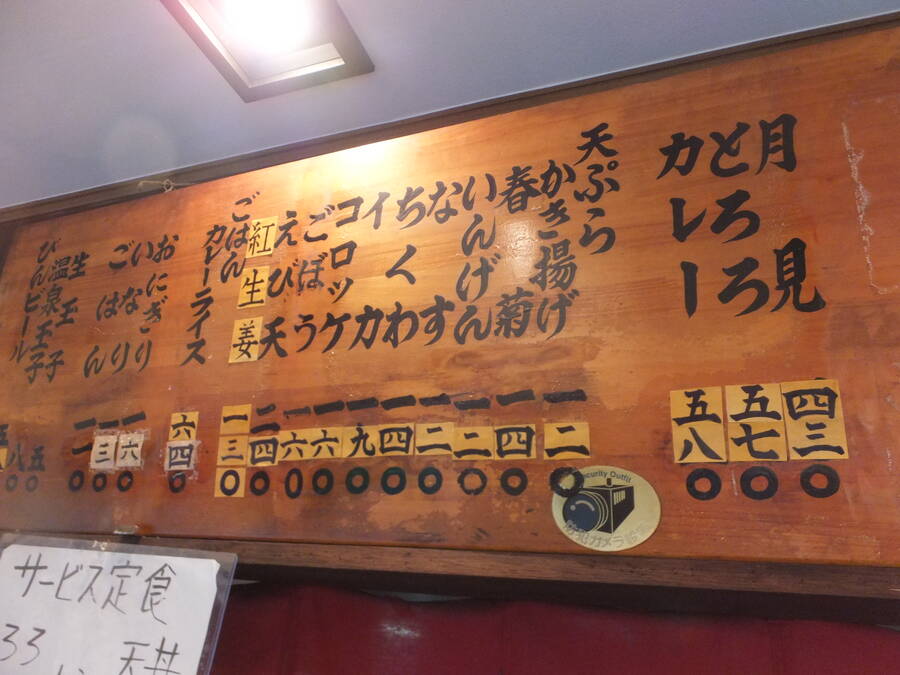 月見 四三〇
とろろ 五七〇
カレー 五八〇
天ぷら
かき揚げ 一二〇
春菊 一四〇
いんげん 一二〇
なす 一二〇
ちくわ 一四〇
イカ 一九〇
コロッケ 一六〇
ごぼう 一六〇
えび天 二四〇
紅生姜 一三〇
ごはん
カレーライス 六四〇
おにぎり 一六〇
いなり 一三〇
ごはん
生玉子 五〇
温泉玉子 八〇
びんビール
Security Outfit
防犯カメラ
サービス定食
33
天丼